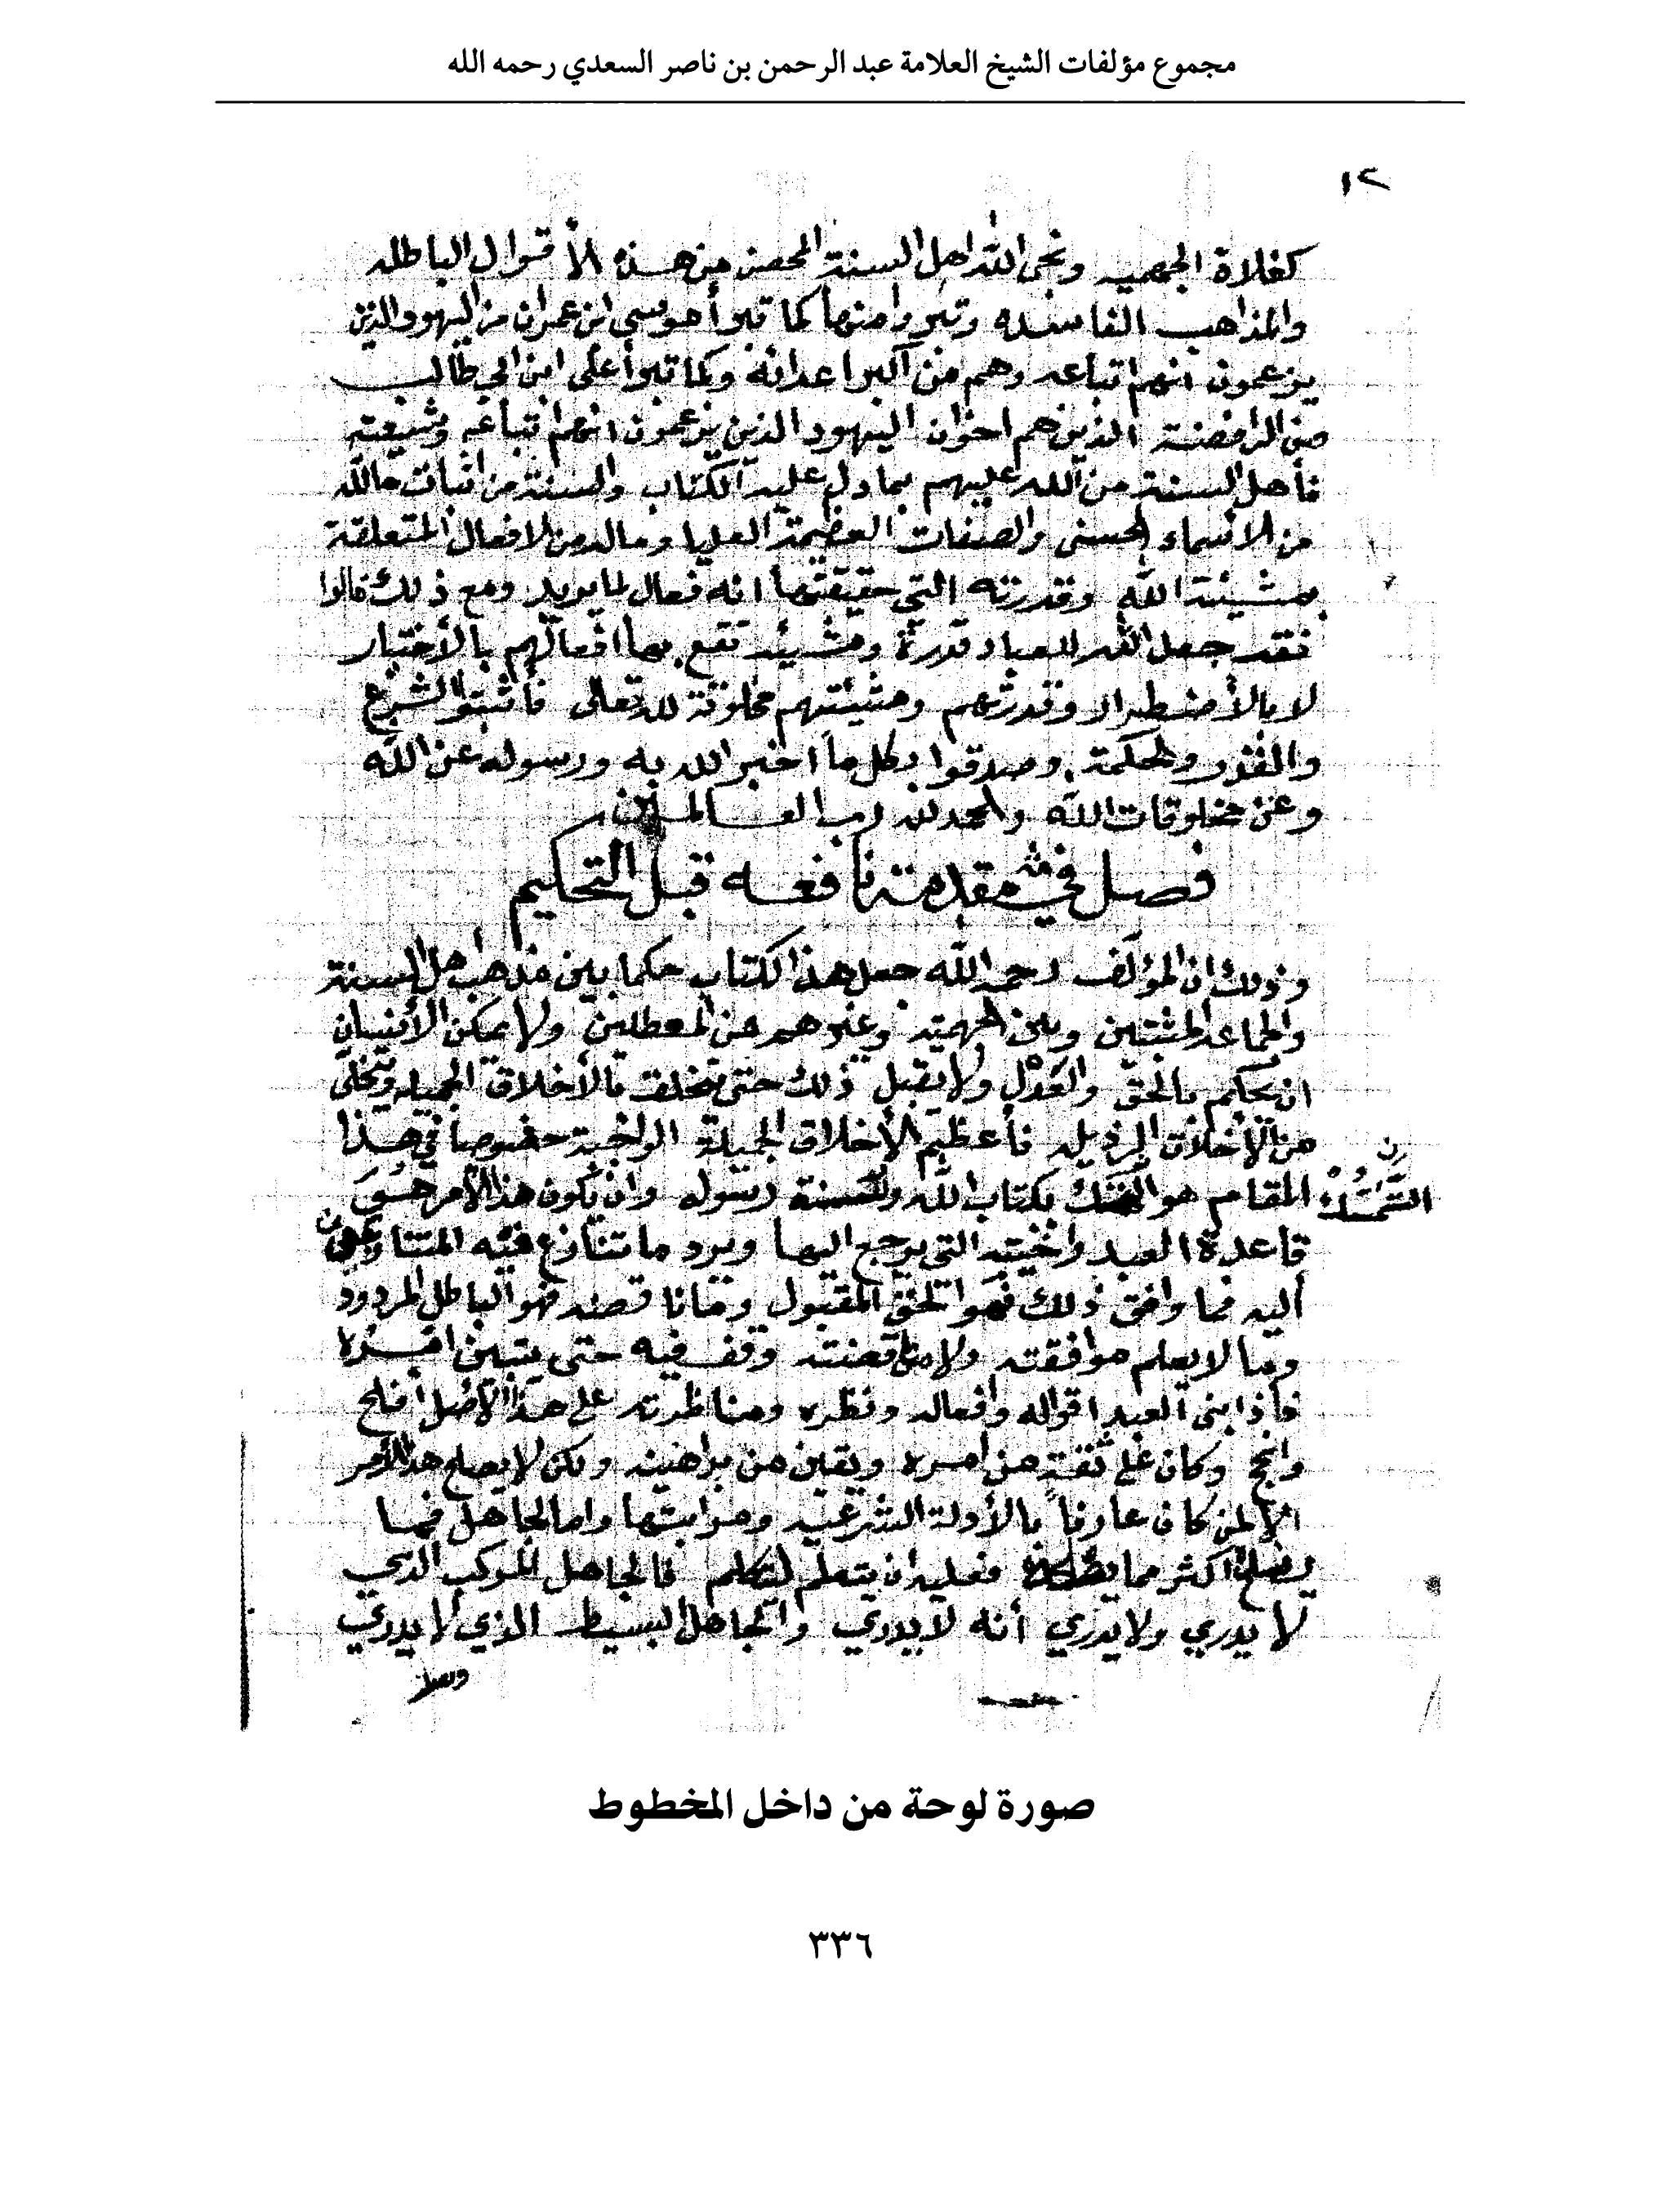 مجموع مؤلفات الشيخ العلامة عبد الرحمن بن ناصر السعدي رحمه الله
١٢
كغلاة الجهميه ونجى الله اهل السنة المحضه من هذه الأقوال الباطله
والمذاهب الفاسده وتبروا منها كما تبرأ موسى ابن عمران من اليهود الذين
يزعمون انهم اتباعه وهم من أكبر اعدائه وكما تبرأ على ابن ابي طالب
من الرافضة الذين هم اخوان اليهود الذين يزعمون انهم اتباعه وشيعته
فأهل السنة من الله عليهم بما دل عليه الكتاب والسنة من اثبات مالله
من الاسماء الحسنى والصفات العظيمة العليا وماله من الافعال المتعلقة
بمشيئة الله وقدرته التي حقيقتها انه فعال لما يريد ومع ذلك قالوا
فقد جعل الله للعباد قدرة ومشيئة تقع بها افعالهم بالأختيار
لا بالأضطرار وقدرتهم ومشيئتهم مخلوقة لله تعالى فأثبتوا الشرع
والقدر والحكمة وصدقوا بكل ما اخبر الله به ورسوله عن الله
وعن مخلوقات الله والحمد لله رب العالمين
فصل في مقدمة نافعه قبل التحكيم
وذلك ان المؤلف رحمه الله جعل هذا الكتاب حكما بين مذهب اهل السنة
والجماعه المثبتين وبين الجهميه وغيرهم من المعطلين ولا يمكن الأنسان
ان يحكم بالحق والعدل ولا يقبل ذلك حتى يتخلق بالأخلاق الجميله ويتخلى
من الأخلاق الرذيله فأعظم الأخلاق الجميلة الواجبة خصوصا في هذا
المقام هو التمسك بكتاب الله وسنة رسوله وان يكون هذا الأمر هو
التمسك
قاعدة العبد وأخيته التي يرجع اليها ويرد ما تنازع فيه المتنازعون
أليه فما وافق ذلك فهو الحق المقبول وما ناقضه فهو الباطل المردود
وما لا يعلم موافقته ولا مناقضته وقف فيه حتى يتبين امره
فأذا بنى العبد اقواله وافعاله ونظره ومناظرته على هذا الأصل أفلح
وانجح وكان على ثقة من امره ويقين من براهينه ولكن لا يصلح هذا الأمر
الا لمن كان عارفا بالأدلة الشرعيه ومراتبها واما الجاهل فما
يفسد اكثر مما يصلح فعليه ان يتعلم ليتكلم فالجاهل المركب الذي
لا يدري ولا يدري أنه لا يدري والجاهل البسيط الذي لا يدري
صورة لوحة من داخل المخطوط
٣٣٦